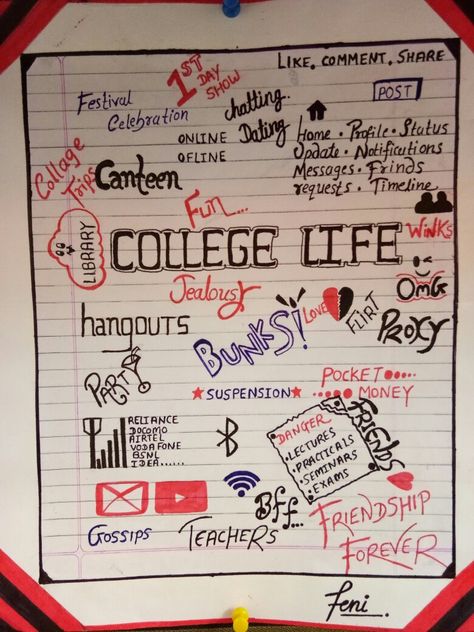 LIKE. COMMENT. SHARE
1ST
DAY
SHOW
POST
Festival
Celebration
Chatting..
Dating
ONLINE
OFLINE
Home • Profile • Status
Update • Notifications
Messages • Frinds
requests • Timeline
Collage
Trips
Canteen
Fun...
WINKS
LIBRARY
COLLEGE LIFE
Jealousy
OMG
hangouts
BUNKS!
LOVE
FLIRT
PROXY
PARTY
★SUSPENSION★
POCKET
MONEY
RELIANCE
DOCOMO
AIRTEL
VODAFONE
BSNL
IDEA......
DANGER
•LECTURES
•PRACTICALS
•SEMINARS
•EXAMS
FRIENDS
GOSSIPS
TEACHERS
Bff...
FRIENDSHIP
FOREVER
Feni.